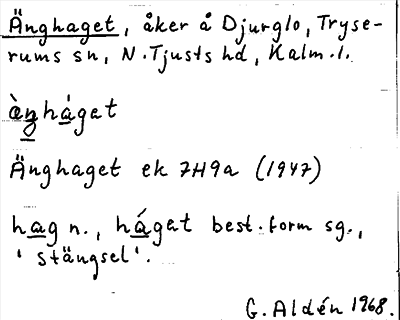 Änghaget, åker å Djurglo, Tryse-
rums sn, N. Tjusts hd, Kalm. l.
ὰŋhágat
Änghaget ek 7H9a (1947)
hag n., hágat best. form sg.,
'stängsel'.
G. Aldén 1968.